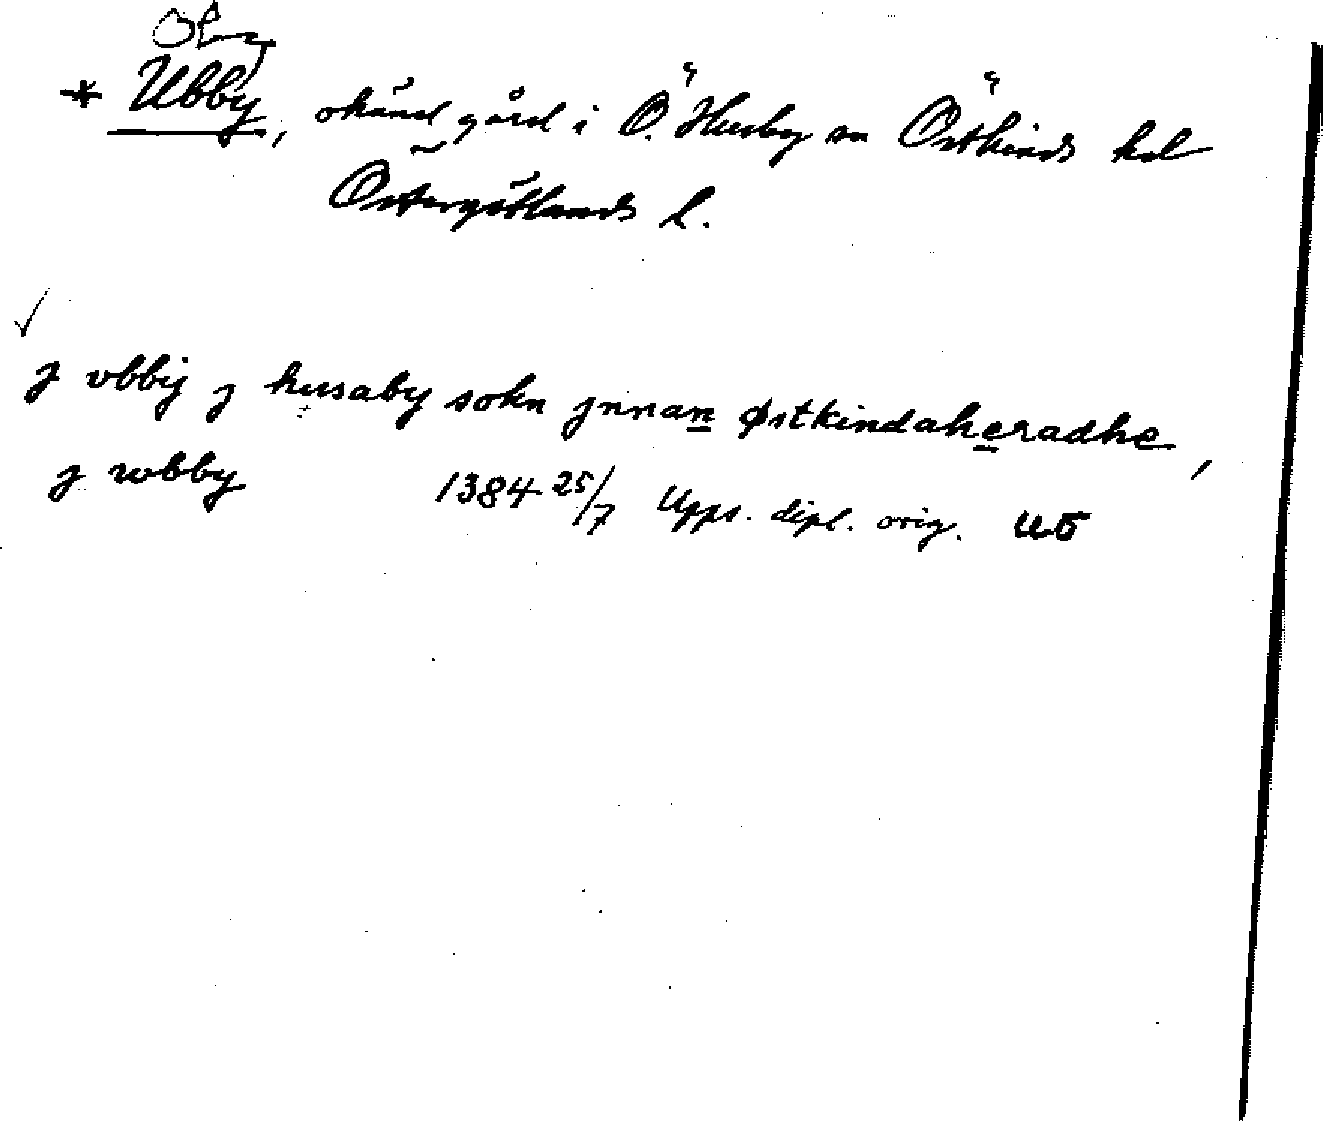 Oby
* Ubby, okänd gård i Ö. Husby sn Östkinds hd
Östergötlands l.
✓
j vbbij j husaby sokn jnnan østkindaheradhe,
j wbby 1384 25/7 Upps. dipl. orig. UB